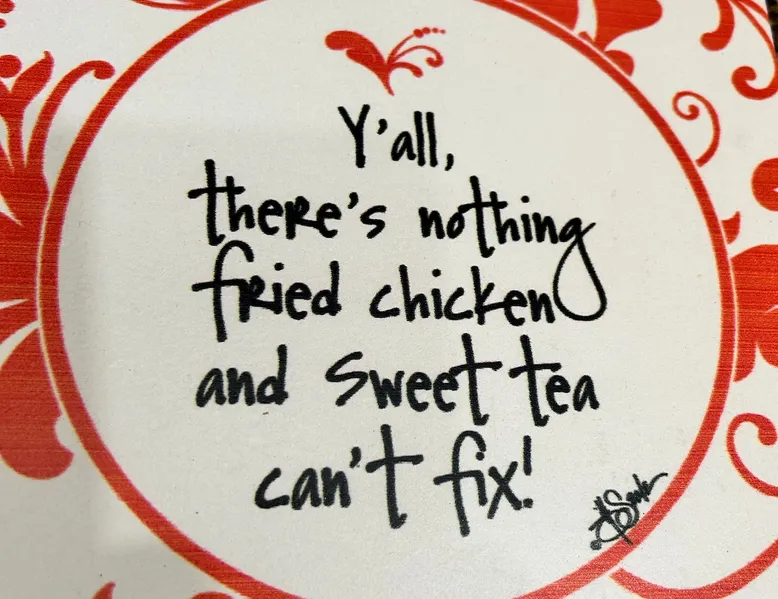 Y'all,
there's nothing
fried chicken
and sweet tea
can't fix!